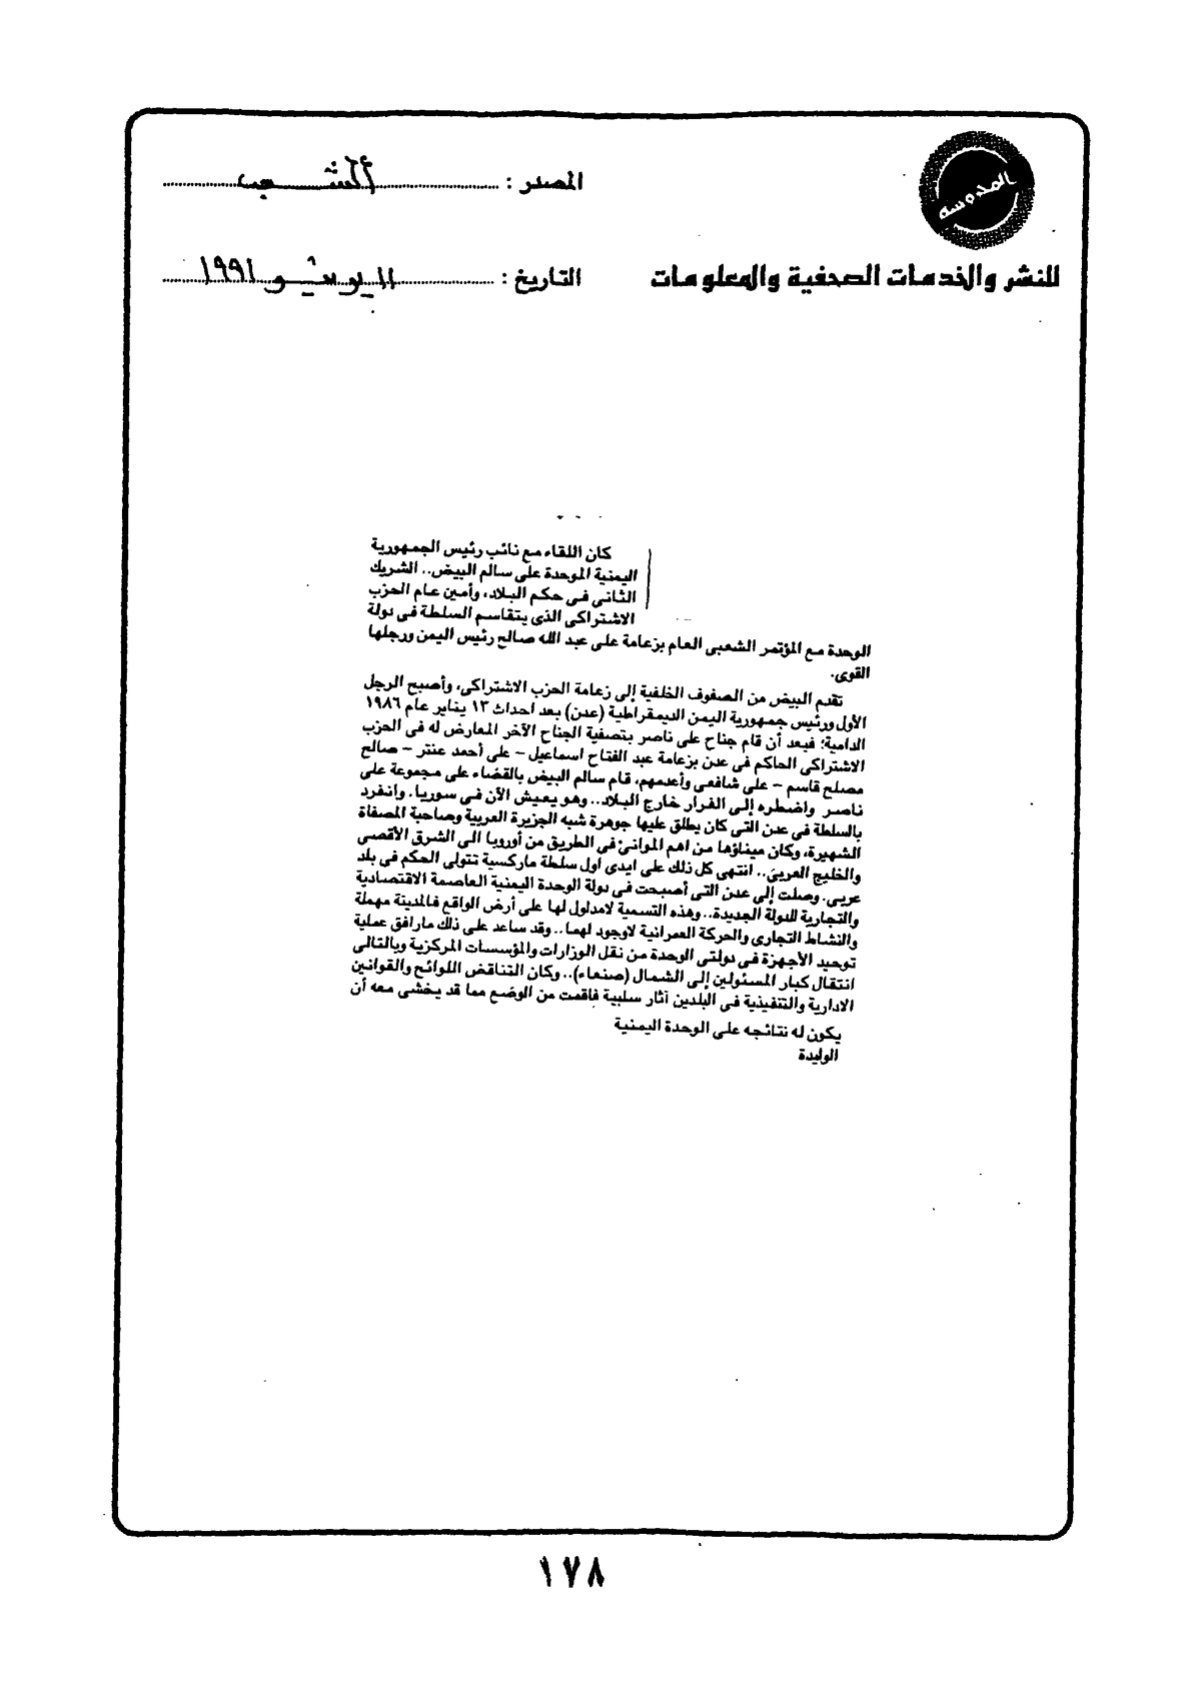 المدوسه
للنشر والخدمات الصحفية والمعلومات
المصدر : الشعب
التاريخ : ١١ يونيو ١٩٩١
كان اللقاء مع نائب رئيس الجمهورية
اليمنية الموحدة على سالم البيض.. الشريك
الثانى فى حكم البلاد، وأمين عام الحزب
الاشتراكى الذى يتقاسم السلطة فى دولة
الوحدة مع المؤتمر الشعبى العام بزعامة على عبد الله صالح رئيس اليمن ورجلها
القوى.
تقدم البيض من الصفوف الخلفية إلى زعامة الحزب الاشتراكى، وأصبح الرجل
الأول ورئيس جمهورية اليمن الديمقراطية (عدن) بعد احداث ١٣ يناير عام ١٩٨٦
الدامية؛ فبعد أن قام جناح على ناصر بتصفية الجناح الآخر المعارض له فى الحزب
الاشتراكى الحاكم فى عدن بزعامة عبد الفتاح اسماعيل – على أحمد عنتر – صالح
مصلح قاسم – على شافعى وأعدمهم، قام سالم البيض بالقضاء على مجموعة على
ناصر واضطره إلى الفرار خارج البلاد.. وهو يعيش الآن فى سوريا. وانفرد
بالسلطة فى عدن التى كان يطلق عليها جوهرة شبه الجزيرة العربية وصاحبة المصفاة
الشهيرة، وكان ميناؤها من اهم الموانئ فى الطريق من أوروبا الى الشرق الأقصى
والخليج العربى.. انتهى كل ذلك على ايدى اول سلطة ماركسية تتولى الحكم فى بلد
عربى. وصلت إلى عدن التى أصبحت فى دولة الوحدة اليمنية العاصمة الاقتصادية
والتجارية للدولة الجديدة.. وهذه التسمية لامدلول لها على أرض الواقع فالمدينة مهملة
والنشاط التجارى والحركة العمرانية لاوجود لهما.. وقد ساعد على ذلك مارافق عملية
توحيد الأجهزة فى دولتى الوحدة من نقل الوزارات والمؤسسات المركزية وبالتالى
انتقال كبار المسئولين إلى الشمال (صنعاء).. وكان التناقض اللوائح والقوانين
الادارية والتنفيذية فى البلدين آثار سلبية فاقمت من الوضع مما قد يخشى معه أن
يكون له نتائجه على الوحدة اليمنية
الوليدة
١٧٨